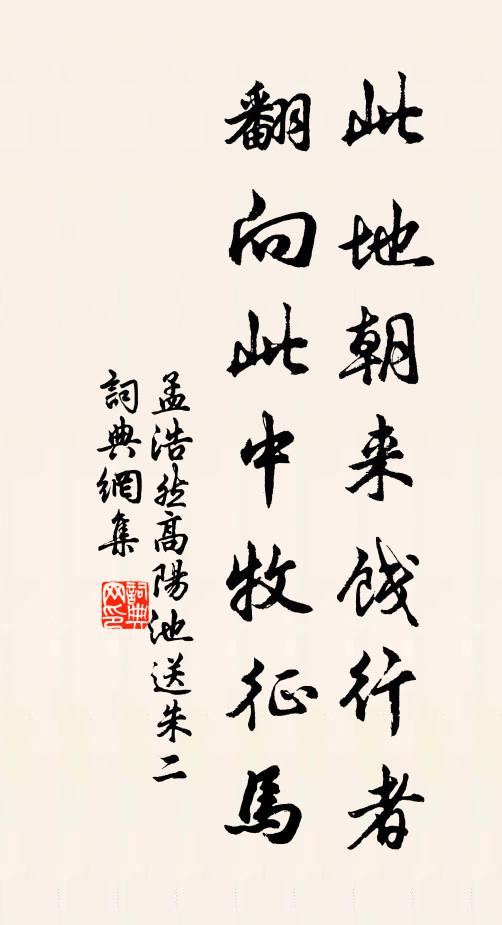 此地朝来餞行者
翻向此中牧征馬
孟浩然高陽池送朱二
詞典網集
詞典网印